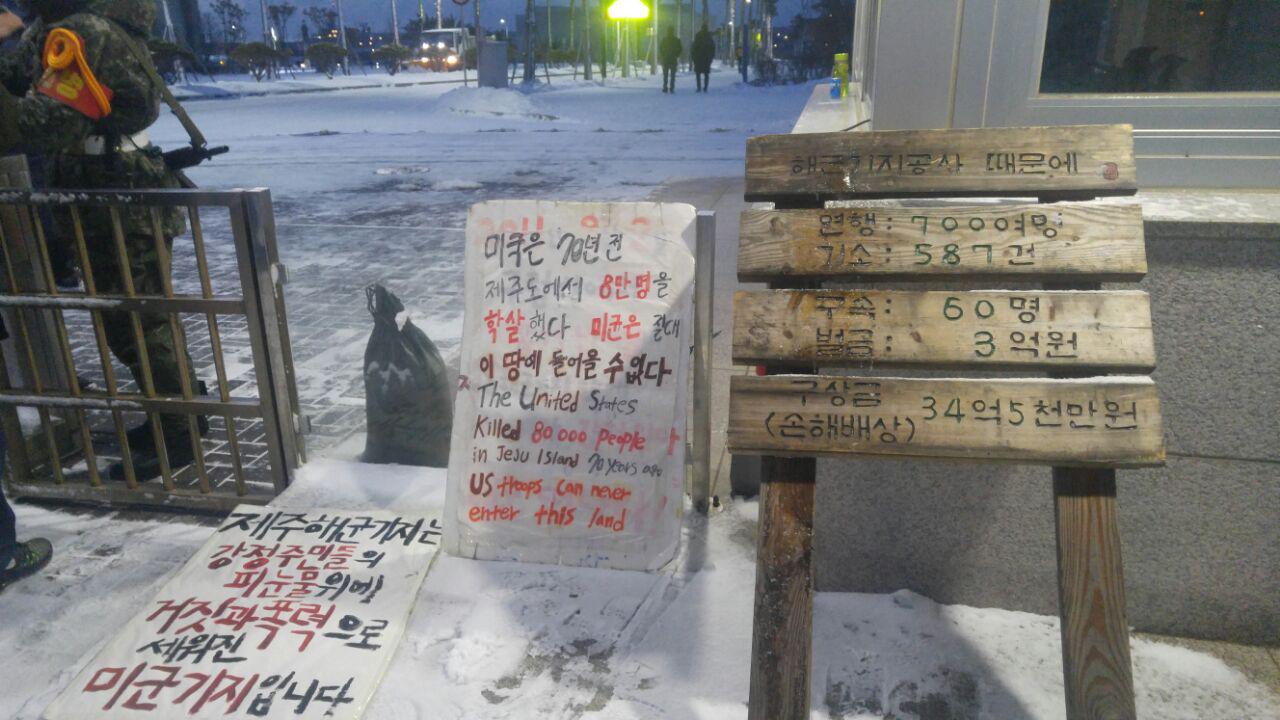 제주해군기지는
강정주민들의
피눈물위에
거짓과폭력으로
세워진
미군기지입니다
미국은 70년 전
제주도에서 8만명을
학살했다 미군은 절대
이 땅에 들어올 수 없다
The United States
Killed 80000 people
in Jeju Island 70 years ago
US troops can never
enter this land
해군기지공사 때문에
연행: 700여명
기소: 587건
구속: 60명
벌금: 3억원
구상금
(손해배상) 34억5천만원